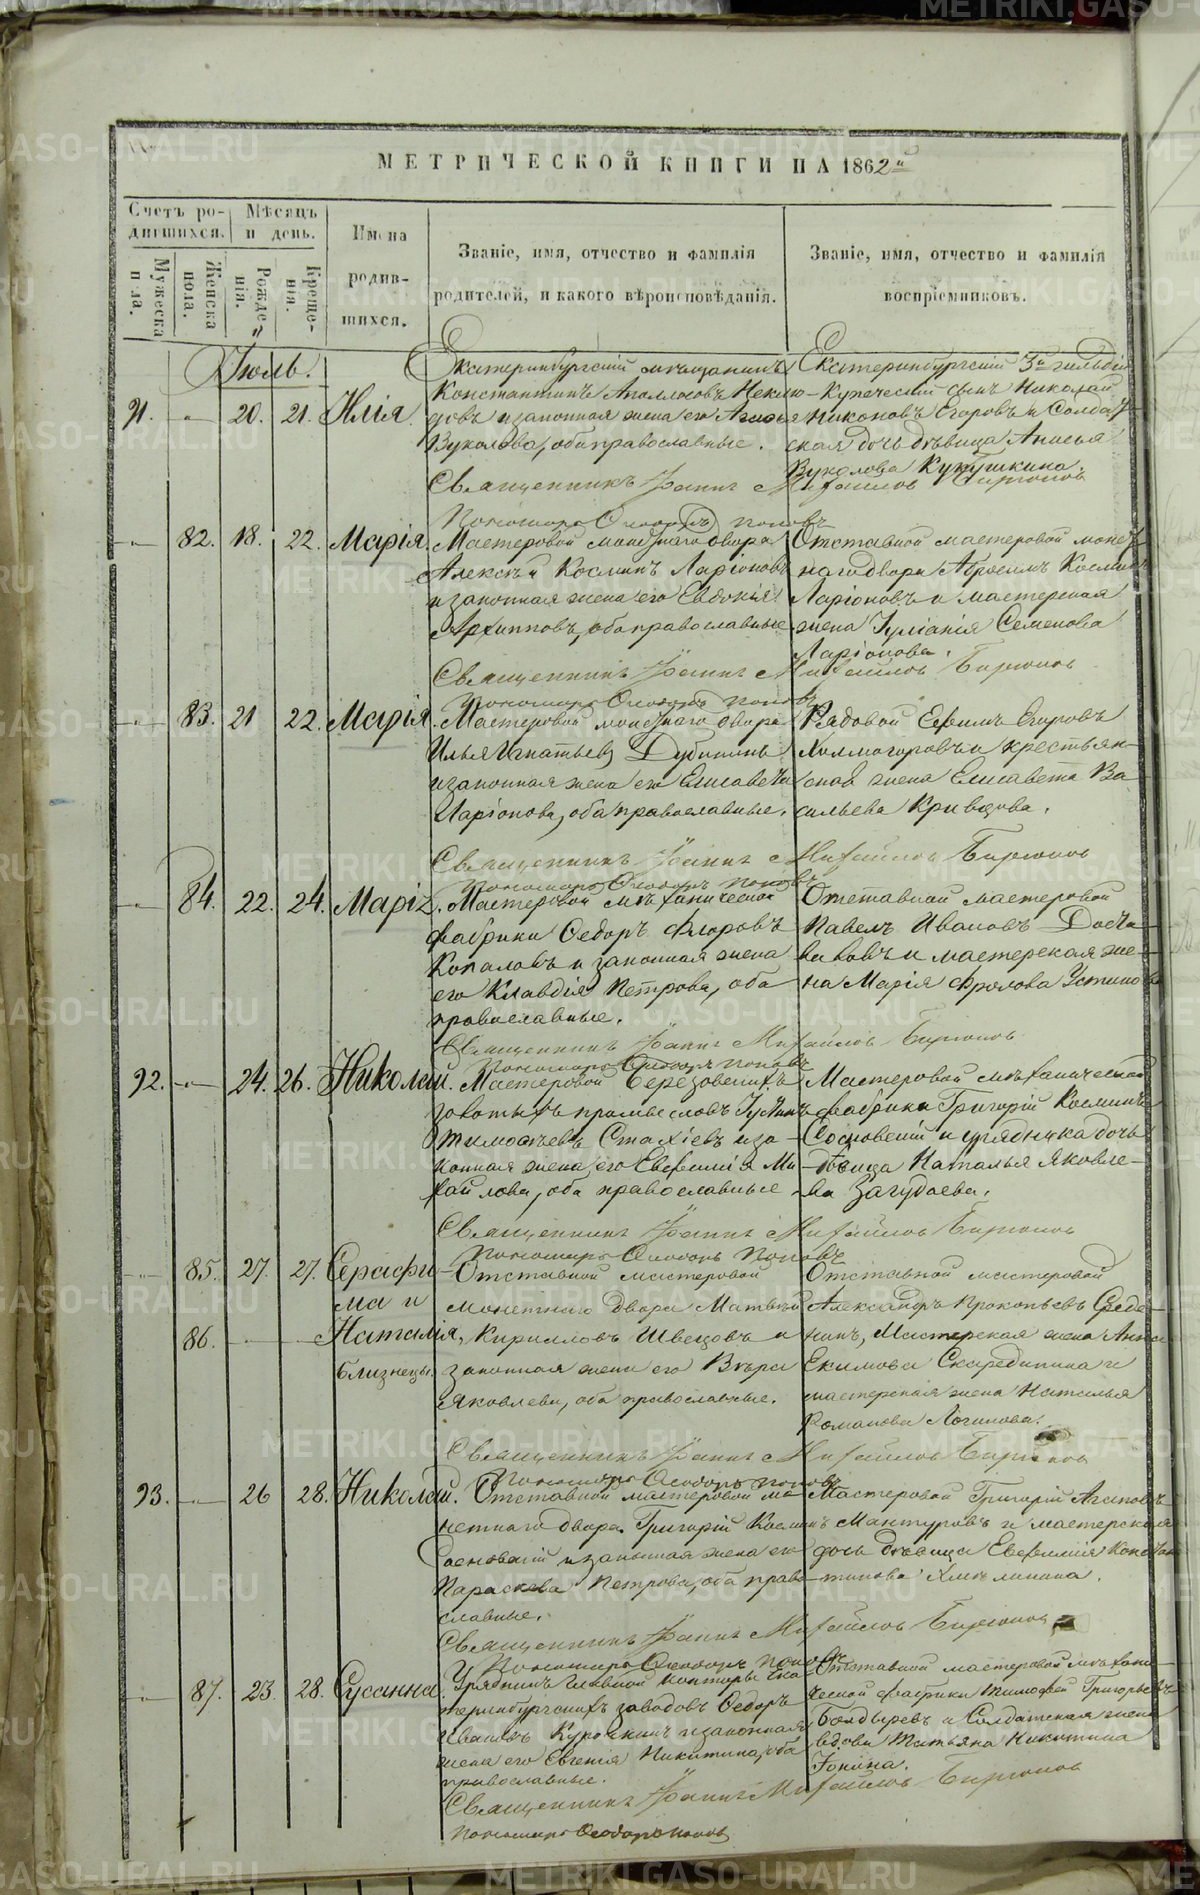 МЕТРИЧЕСКОЙ КНИГИ НА 1862й
Счетъ ро-
дившихся.
Мѣсяцъ
и день.
Имена
родив-
шихся.
Званіе, имя, отчество и фамилія
родителей, и какого вѣроисповѣданія.
Званіе, имя, отчество и фамилія
воспріемниковъ.
Мужеска
пола.
Женска
пола.
Рожде-
нія.
Креще-
нія.
Іюль.
91. 20. 21. Илія.
Екатеринбургскій мѣщанинъ
Константинъ Аполлосовъ Неклю-
довъ и законная жена его
Вуколова, оба православные.
Екатеринбургскій 3й гильдіи
купеческій сынъ Николай
Никоновъ Егоровъ и Солдат-
ская дочь дѣвица Анисья
Вуколова Кукушкина.
Священникъ Іоаннъ Михайловъ Бирюковъ
Пономарь Ѳеодоръ Поповъ
82. 18. 22. Марія.
Мастеровой монетнаго двора
Алексѣй Косминъ Ларіоновъ
и законная жена его Евдокія
Архиппова, оба православные.
Отставной мастеровой монет-
наго двора Абросимъ Косминъ
Ларіоновъ и мастерская
жена Іуліанія Семенова
Ларіонова.
Священникъ Іоаннъ Михайловъ Бирюковъ
Пономарь Ѳеодоръ Поповъ
83. 21 22. Марія.
Мастеровой монетнаго двора
Илья Игнатьевъ Дубининъ
и законная жена его Елисавета
Ларіонова, оба православные.
Рядовой Ефимъ Егоровъ
Холмогоровъ и крестьян-
ская жена Елисавета Ва-
сильева Кривцова.
Священникъ Іоаннъ Михайловъ Бирюковъ
Пономарь Ѳеодоръ Поповъ
84. 22. 24. Марія.
Мастеровой механической
фабрики Ѳедоръ Флоровъ
Копаловъ и законная жена
его Клавдія Петрова, оба
православные.
Отставной мастеровой
Павелъ Ивановъ
и мастерская же-
на Марія Фролова Устинова
Священникъ Іоаннъ Михайловъ Бирюковъ
Пономарь Ѳеодоръ Поповъ
92. 24. 26. Николай.
Мастеровой Березовскихъ
золотыхъ промысловъ Іустинъ
Тимофѣевъ Стахіевъ и за-
конная жена его Евфимія Ми-
хайлова, оба православные
Мастеровой механической
фабрики Григорій Косминъ
Сосновскій и урядника дочь
дѣвица Наталья Яковле-
ва Загудаева.
Священникъ Іоаннъ Михайловъ Бирюковъ
Пономарь Ѳеодоръ Поповъ
85. 27. 27. Серафи-
ма и
86. Наталія,
близнецы.
Отставной мастеровой
монетнаго двора Матвѣй
Кирилловъ Швецовъ и
законная жена его Вѣра
Яковлева, оба православные.
Отставной мастеровой
Александръ Прокопьевъ Среде-
нинъ, Мастерская жена Анна
Екимова Скаредитина и
мастерская жена Наталья
Романова Логинова.
Священникъ Іоаннъ Михайловъ Бирюковъ
Пономарь Ѳеодоръ Поповъ
93. 26 28. Николай.
Отставной мастеровой мо-
нетнаго двора Григорій Космин
Сосновскій и законная жена его
Параскева Петрова, оба право-
славные.
Мастеровой Григорій Агаповъ
Мантуровъ и мастерская
дочь дѣвица Евфимія Констан-
тинова Хмѣлинина.
Священникъ Іоаннъ Михайловъ Бирюковъ
Пономарь Ѳеодоръ Поповъ
87. 23. 28. Сусанна.
Урядникъ Главной конторы Ека-
теринбургскихъ заводовъ Ѳедоръ
Ивановъ Курочкинъ и законная
жена его Евгенія Никитина, оба
православные.
Отставной мастеровой механи-
ческой фабрики Тимофей Григорьевъ
Болдыревъ и Солдатская жена
вдова Татьяна Никитина
Іонина.
Священникъ Іоаннъ Михайловъ Бирюковъ
Пономарь Ѳеодоръ Поповъ
METRIKI.GASO-URAL.RU